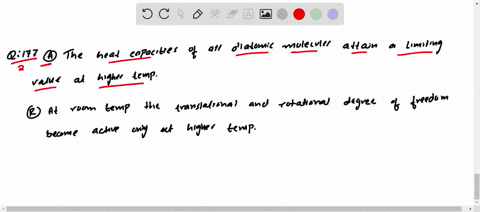 Q:177 (A) The heat capacities of all diatomic molecules attain a limiting
2
value at higher temp.
(R) At room temp the translational and rotational degree of freedom
become active only at higher temp.